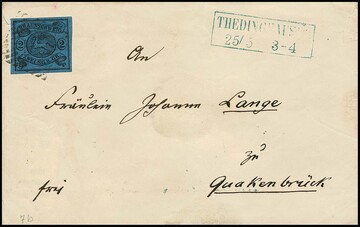 THEDINGHAUSEN
25/8 3-4
2 2
An
Fräulein Johanne Lange
zu
Quakenbrück
frei
7b